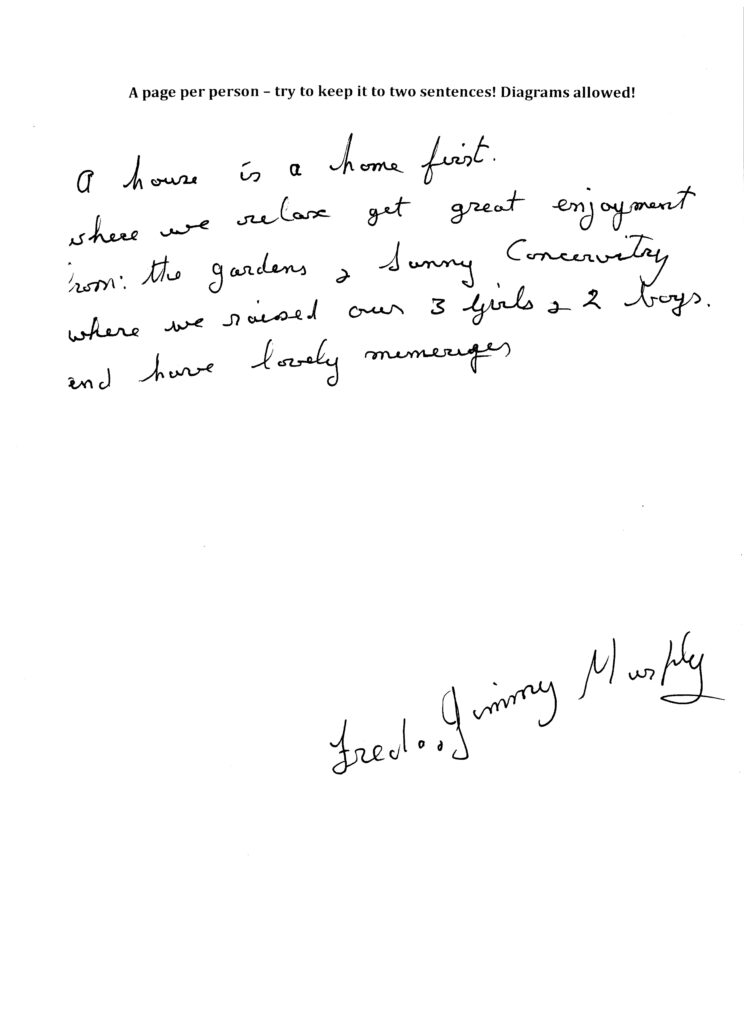 A page per person – try to keep it to two sentences! Diagrams allowed!
A house is a home first.
where we relax get great enjoyment
from: the gardens & Sunny Concervitry
where we raised our 3 girls & 2 boys.
and have lovely memeriges
Fred.. Jimmy Murphy